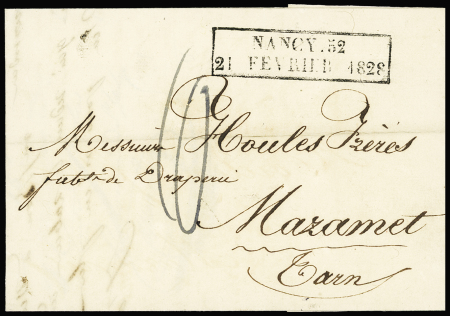 NANCY. 52
21 FEVRIER 1828
Messieurs Houles Frères
fabts de Draperie
Mazamet
Tarn